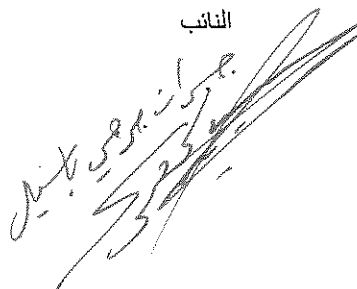 النائب
جبران جرجي باسيل